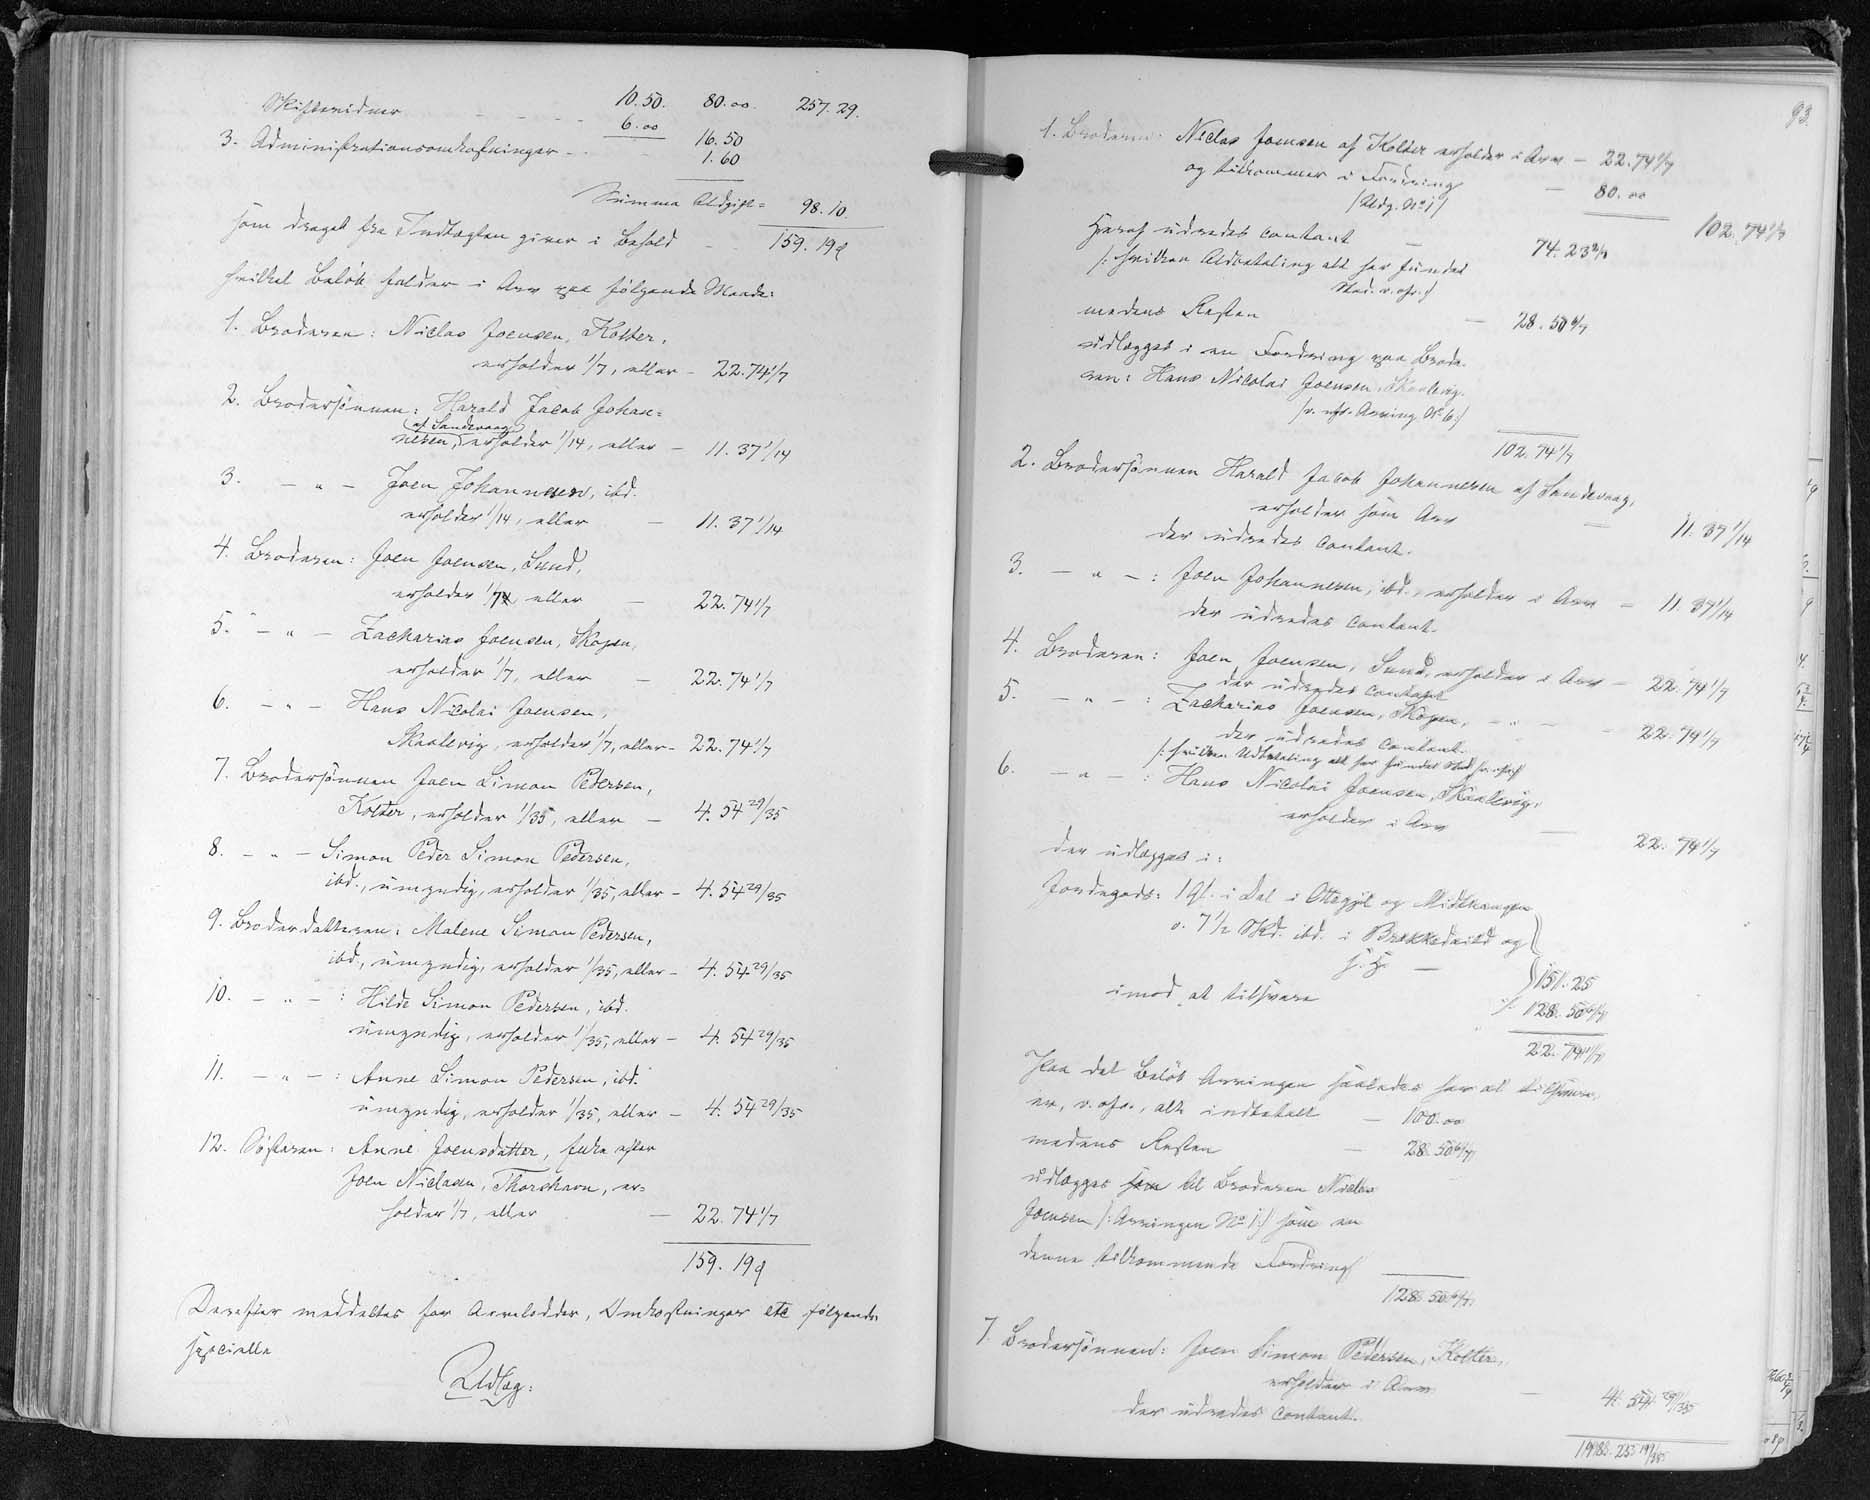 Skiftevidner - - - 10.50. 80.00. 257.29.
6.00 16.50
3. Administrationsomkostninger - - 1.60
Summa Udgift = 98.10.
som draget fra Indtægten giver i Behold - - 159.19q
hvilket Beløb falder i Arv paa følgende Maade:
1. Broderen: Niclas Joensen, Kolter,
erholder 1/7, eller - 22.74 1/7
2. Brodersønnen: Harald Jacob Johan=
(af Sandevaag)
nesen, erholder 1/14, eller - 11.37 1/14
3. - " - Joen Johannesen, ibd.
erholder 1/14, eller - 11.37 1/14
4. Broderen: Joen Joensen, Sund,
erholder 1/7 eller - 22.74 1/7
5. - " - Zacharias Joensen, Skopen,
erholder 1/7, eller - 22.74 1/7
6. - " - Hans Nicolai Joensen,
Skaalevig, erholder 1/7, eller - 22.74 1/7
7. Brodersønnen Joen Simon Pedersen,
Kolter, erholder 1/35, eller - 4.54 29/35
8. - " - Simon Peder Simon Pedersen,
ibd., umyndig, erholder 1/35, eller - 4.54 29/35
9. Broderdatteren: Malene Simon Pedersen,
ibd., umyndig, erholder 1/35, eller - 4.54 29/35
10. - " - : Hilde Simon Pedersen, ibd.
umyndig, erholder 1/35, eller - 4.54 29/35
11. - " - : Anne Simon Pedersen, ibd.
umyndig, erholder 1/35, eller - 4.54 29/35
12. Søsteren: Anne Joensdatter, Enke efter
Joen Niclasen, Thorshavn, er=
holder 1/7, eller - 22.74 1/7
159.19q
Derefter meddeltes for Arvelodder, Omkostninger etc følgende
specielle
Udlæg:
93.
1. Broderen: Niclas Joensen af Kolter erholder i Arv - 22.74 1/7
og tilkommer i Fordring - 80.00
/Udg. No 1/
102.74 1/7
Heraf udredes contant - 74.23 2/7
/: hvilken Udbetaling alt har fundet
Sted. v. ofr. :/
medens Resten - 28.50 6/7
udlægges i en Fordring paa Brode-
ren: Hans Nicolai Joensen, Skaalevig.
/v. nfr. Arving No 6:/
102.74 1/7
2. Brodersønnen Harald Jacob Johannesen af Sandevaag,
erholder som Arv - 11.37 1/14
der udredes contant.
3. - " - : Joen Johannesen, ibd., erholder i Arv - 11.37 1/14
der udredes contant.
4. Broderen: Joen Joensen, Sund, erholder i Arv - 22.74 1/7
der udredes contant
5. - " - : Zacharias Joensen, Skopen, - " - - 22.74 1/7
der udredes contant.
/: hvilken Udbetaling alt har fundet Sted
6. - " - : Hans Nicolai Joensen, Skaalevig,
erholder i Arv - 22.74 1/7
der udlægges i:
Jordegods: 1 Gl. i Dal i og
o. 7 1/2 Skd. ibd. i og
H. H. - 151.25
imod at tilsvare ./. 128.50 6/7
22.74 1/7
Paa det Beløb Arvingen saaledes har at tilsvare,
er, v. ofr., alt indbetalt - 100.00
medens Resten - 28.50 6/7
udlægges til Broderen Niclas
Joensen /: Arvingen No 1:/ som en
denne tilkommende Fordring
128.50 6/7
7. Brodersønnen: Joen Simon Pedersen, Kolter,
erholder i Arv - 4.54 29/35
der udredes contant.